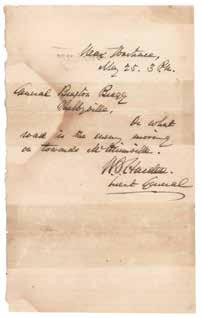 Near Wartrace,
May 25. 3 P.M.
General Braxton Bragg
Shelbyville.
On what
road is the enemy moving
on towards McMinnville.
W J Hardee
Lieut General